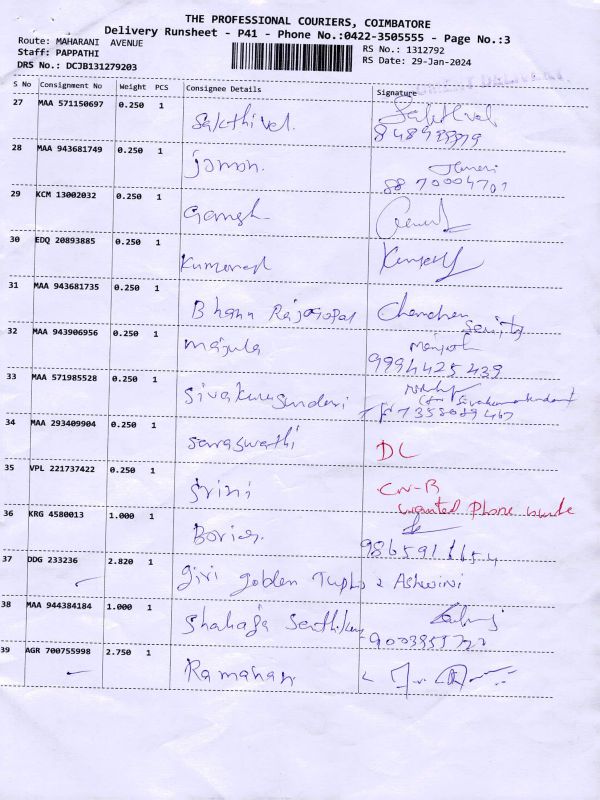 THE PROFESSIONAL COURIERS, COIMBATORE
Delivery Runsheet - P41 - Phone No.:0422-3505555 - Page No.:3
Route: MAHARANI AVENUE RS No.: 1312792
Staff: PAPPATHI RS Date: 29-Jan-2024
DRS No.: DCJB131279203
S No Consignment No Weight PCS Consignee Details Signature
27 MAA 571150697 0.250 1 Sakthivel. Sakthivel
28 MAA 943681749 0.250 1 Jomon.
8870004701
29 KCM 13002032 0.250 1 Gangh
30 EDQ 20893885 0.250 1
31 MAA 943681735 0.250 1 Bhanu Rajagopal Chandran
Security
32 MAA 943906956 0.250 1 Majula
9994425439
33 MAA 571985528 0.250 1 Sivakurusundari
7358089467
34 MAA 293409904 0.250 1 Saraswathi DC
35 VPL 221737422 0.250 1 Srini CN-R
wanted Phone
36 KRG 4580013 1.000 1
9865911654
37 DDG 233236 2.820 1 Giri Golden Tulps 2 Ashwini
38 MAA 944384184 1.000 1 Shahaja Senthilkum
39 AGR 700755998 2.750 1 Ramanan